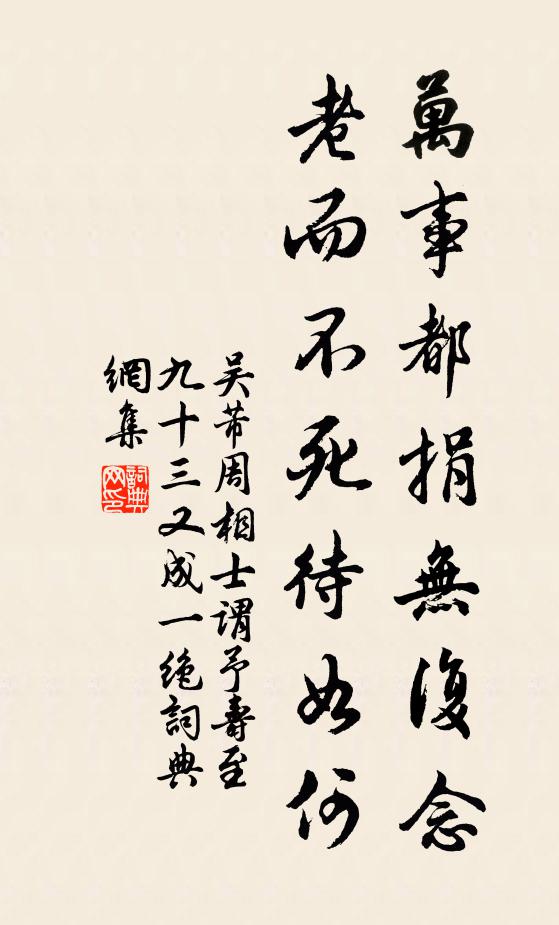 萬事都捐無復念
老而不死待如何
吴芾周相士谓予壽至
九十三又成一絶詞典
網集
詞典
网印